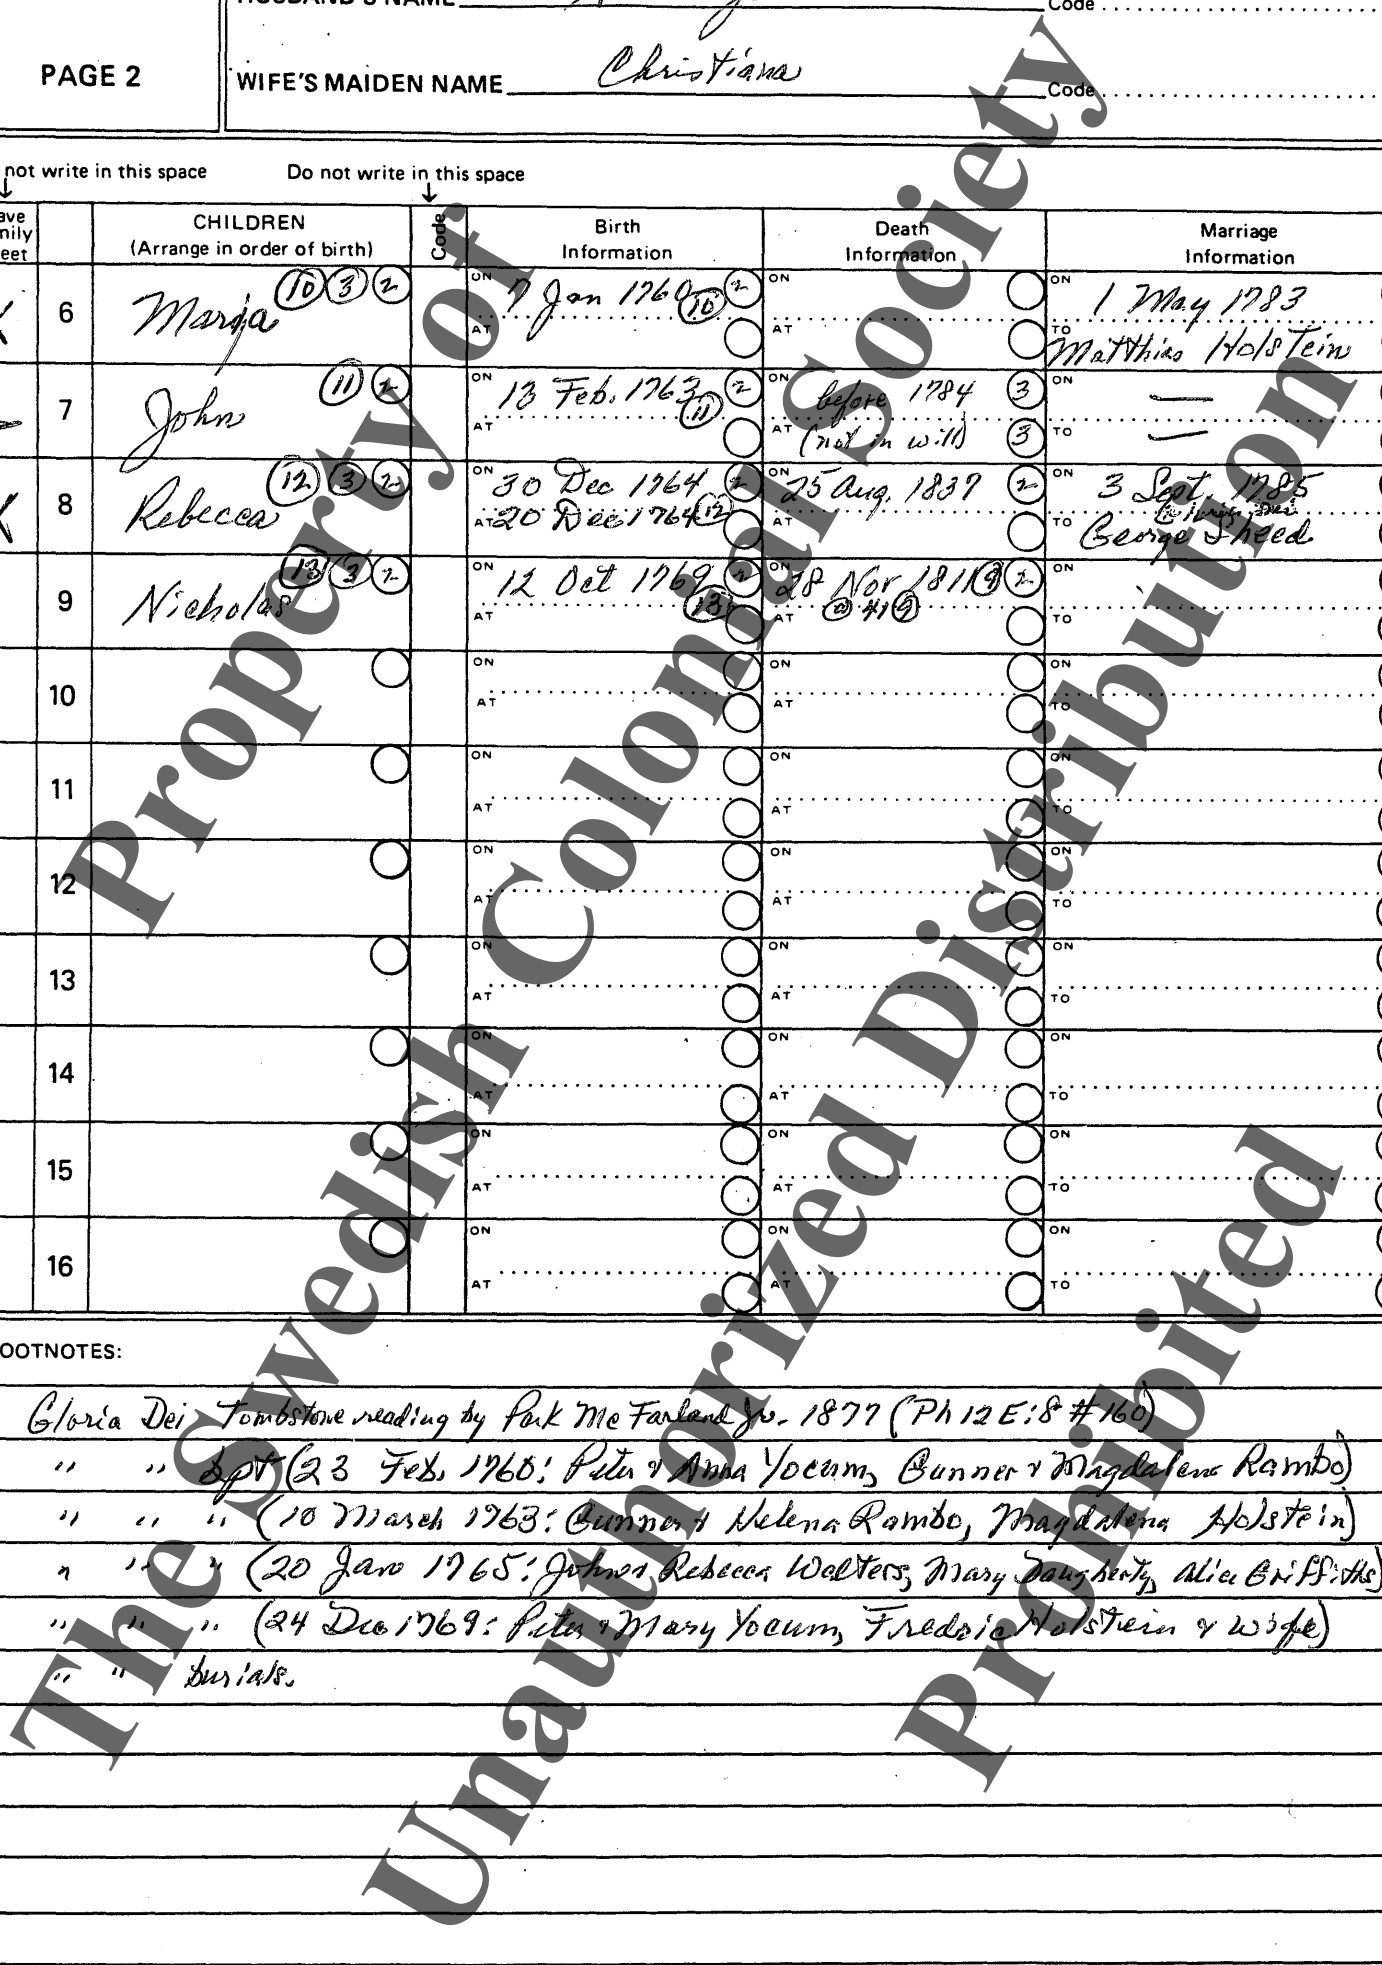 HUSBAND'S NAME
Code
PAGE 2
WIFE'S MAIDEN NAME Christiana
Code
not write in this space Do not write in this space
ave
nily
eet
CHILDREN
(Arrange in order of birth)
Code
Birth
Information
Death
Information
Marriage
Information
6 Maria 10 3 2 ON 7 Jan 1760 2 10 AT ON AT ON 1 May 1783 TO Matthias Holstein
7 John 11 2 ON 13 Feb. 1763 2 11 AT ON before 1784 3 AT (not in will) 3 ON — TO —
8 Rebecca 12 3 2 ON 30 Dec 1764 2 AT 20 Dec 1764 12 ON 25 Aug. 1837 2 AT ON 3 Sept. 1785 TO George Sheed
9 Nicholas 13 3 2 ON 12 Oct 1769 2 13 AT ON 28 Nov 1811 9 2 AT @ 41 9 ON TO
10 ON AT ON AT ON TO
11 ON AT ON AT ON TO
12 ON AT ON AT ON TO
13 ON AT ON AT ON TO
14 ON AT ON AT ON TO
15 ON AT ON AT ON TO
16 ON AT ON AT ON TO
OOTNOTES:
Gloria Dei Tombstone reading by Park McFarland Jr. 1877 (Ph 12 E: 8 #160)
" " bpt (23 Feb. 1760: Peter & Anna Yocum, Gunner & Magdalena Rambo)
" " " (10 March 1763: Gunner & Helena Rambo, Magdalena Holstein)
" " " (20 Jan 1765: John & Rebecca Walters, Mary Daugherty, Alice Griffiths)
" " " (24 Dec 1769: Peter & Mary Yocum, Fredric Holstein & wife)
" " burials.
Property of
The Swedish Colonial Society
Unauthorized Distribution
Prohibited